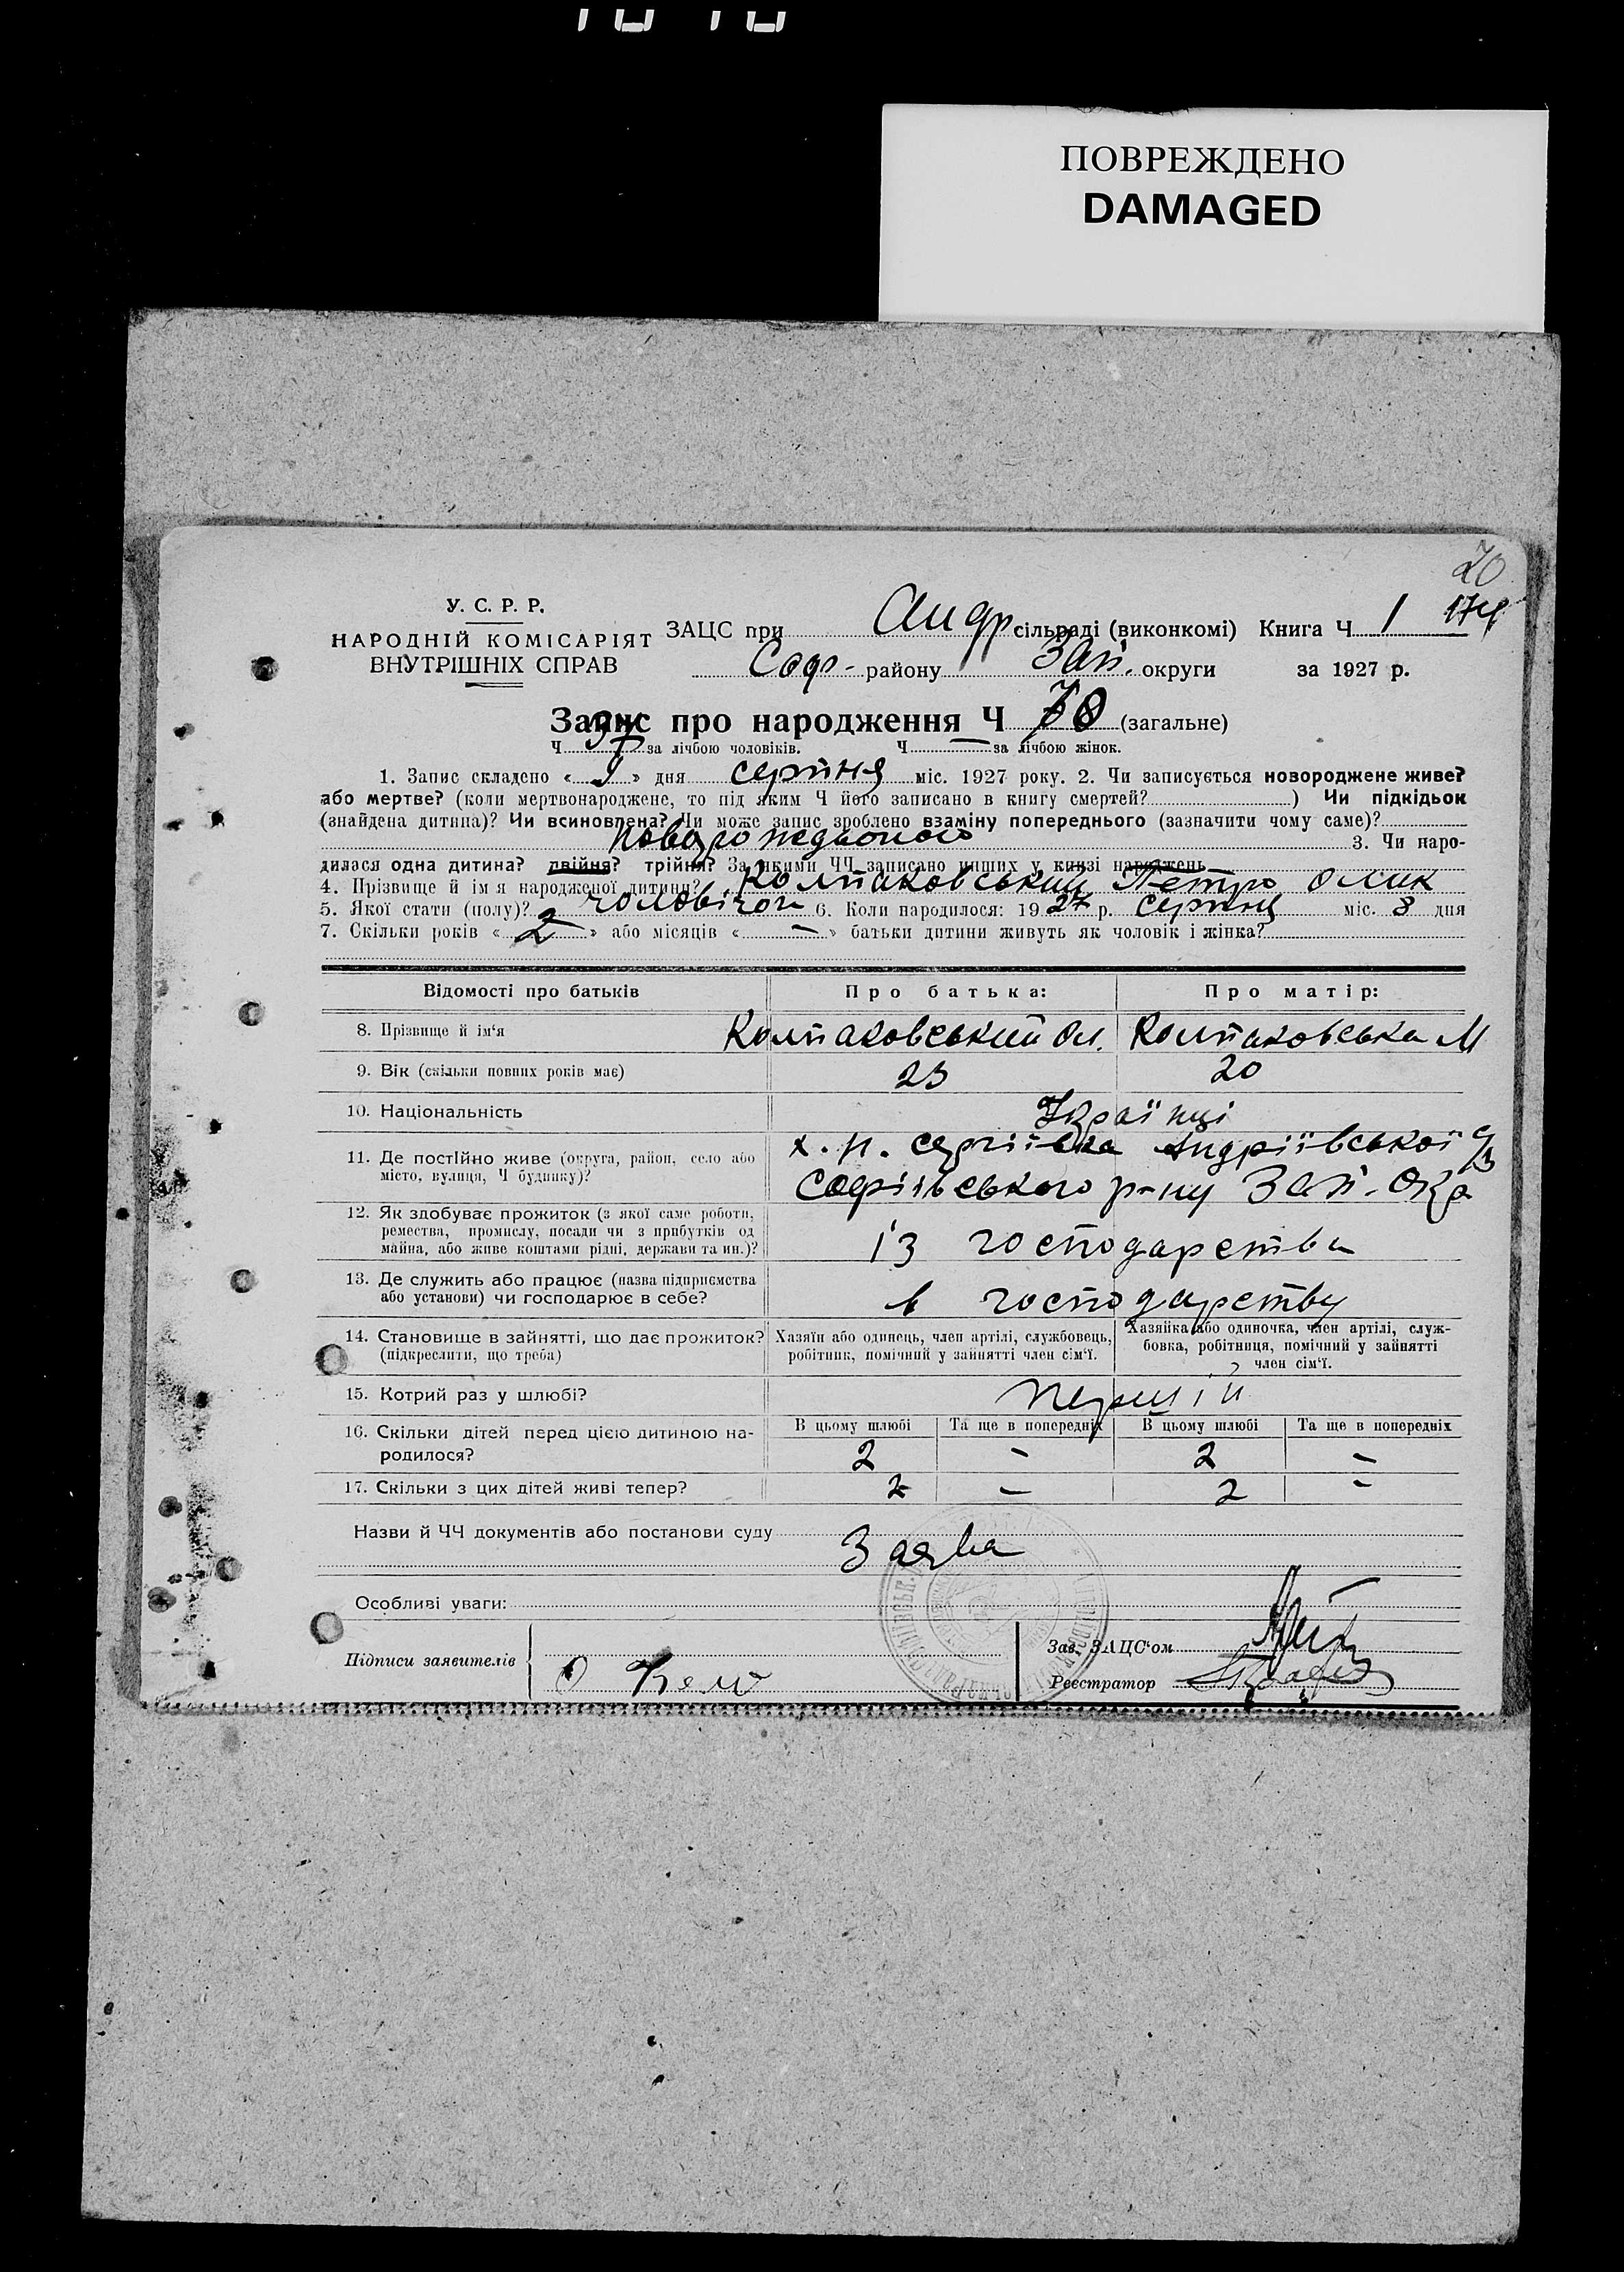 ПОВРЕЖДЕНО
DAMAGED
20
У. С. Р. Р.
НАРОДНІЙ КОМІСАРІЯТ
ВНУТРІШНІХ СПРАВ
ЗАЦС при Андр сільраді (виконкомі) Книга Ч 1 174
Соф- району Зап. округи за 1927 р.
Запис про народження Ч 70 (загальне)
Ч за лічбою чоловіків. Ч — за лічбою жінок.
1. Запис складено « 9 » дня серпня міс. 1927 року. 2. Чи записується новороджене живе?
або мертве? (коли мертвонароджене, то під яким Ч його записано в книгу смертей? ) Чи підкідьок
(знайдена дитина)? Чи всиновлена? Чи може запис зроблено взаміну попереднього (зазначити чому саме)?
новорожденого 3. Чи наро-
дилася одна дитина? двійня? трійня? За якими ЧЧ записано инших у книзі народжень
4. Прізвище й ім я народженої дитини? Колпаковський Петро Олик
5. Якої стати (полу)? чоловічоі 6. Коли народилося: 1927 р. серпня міс. 8 дня
7. Скільки років « 2 » або місяців « — » батьки дитини живуть як чоловік і жінка?
Відомості про батьків Про батька: Про матір:
8. Прізвище й ім‘я Колпаковський Ол. Колпаковська М
9. Вік (скільки повних років має) 23 20
10. Національність Українці
11. Де постійно живе (округа, район, село або місто, вулиця, Ч будинку)? х. н. Сергіївка Андріївської с/з
Софіївського р-ну Зап. Окр
12. Як здобуває прожиток (з якої саме роботи,
ремества, промислу, посади чи з прибутків од
майна, або живе коштами рідні, держави та ин.)? із господарства
13. Де служить або працює (назва підприємства
або установи) чи господарює в себе? в господарству
14. Становище в зайнятті, що дає прожиток?
(підкреслити, що треба)
Хазяїн або одинець, член артілі, службовець,
робітник, помічний у зайнятті член сім‘ї.
Хазяйка або одиночка, член артілі, служ-
бовка, робітниця, помічний у зайнятті
член сім‘ї.
15. Котрий раз у шлюбі? перший
В цьому шлюбі Та ще в попередніх В цьому шлюбі Та ще в попередніх
16. Скільки дітей перед цією дитиною на-
родилося? 2 — 2 —
17. Скільки з цих дітей живі тепер? 2 — 2 —
Назви й ЧЧ документів або постанови суду
Заява
Особливі уваги:
Зав. ЗАЦС‘ом
Підписи заявителів
Реєстратор